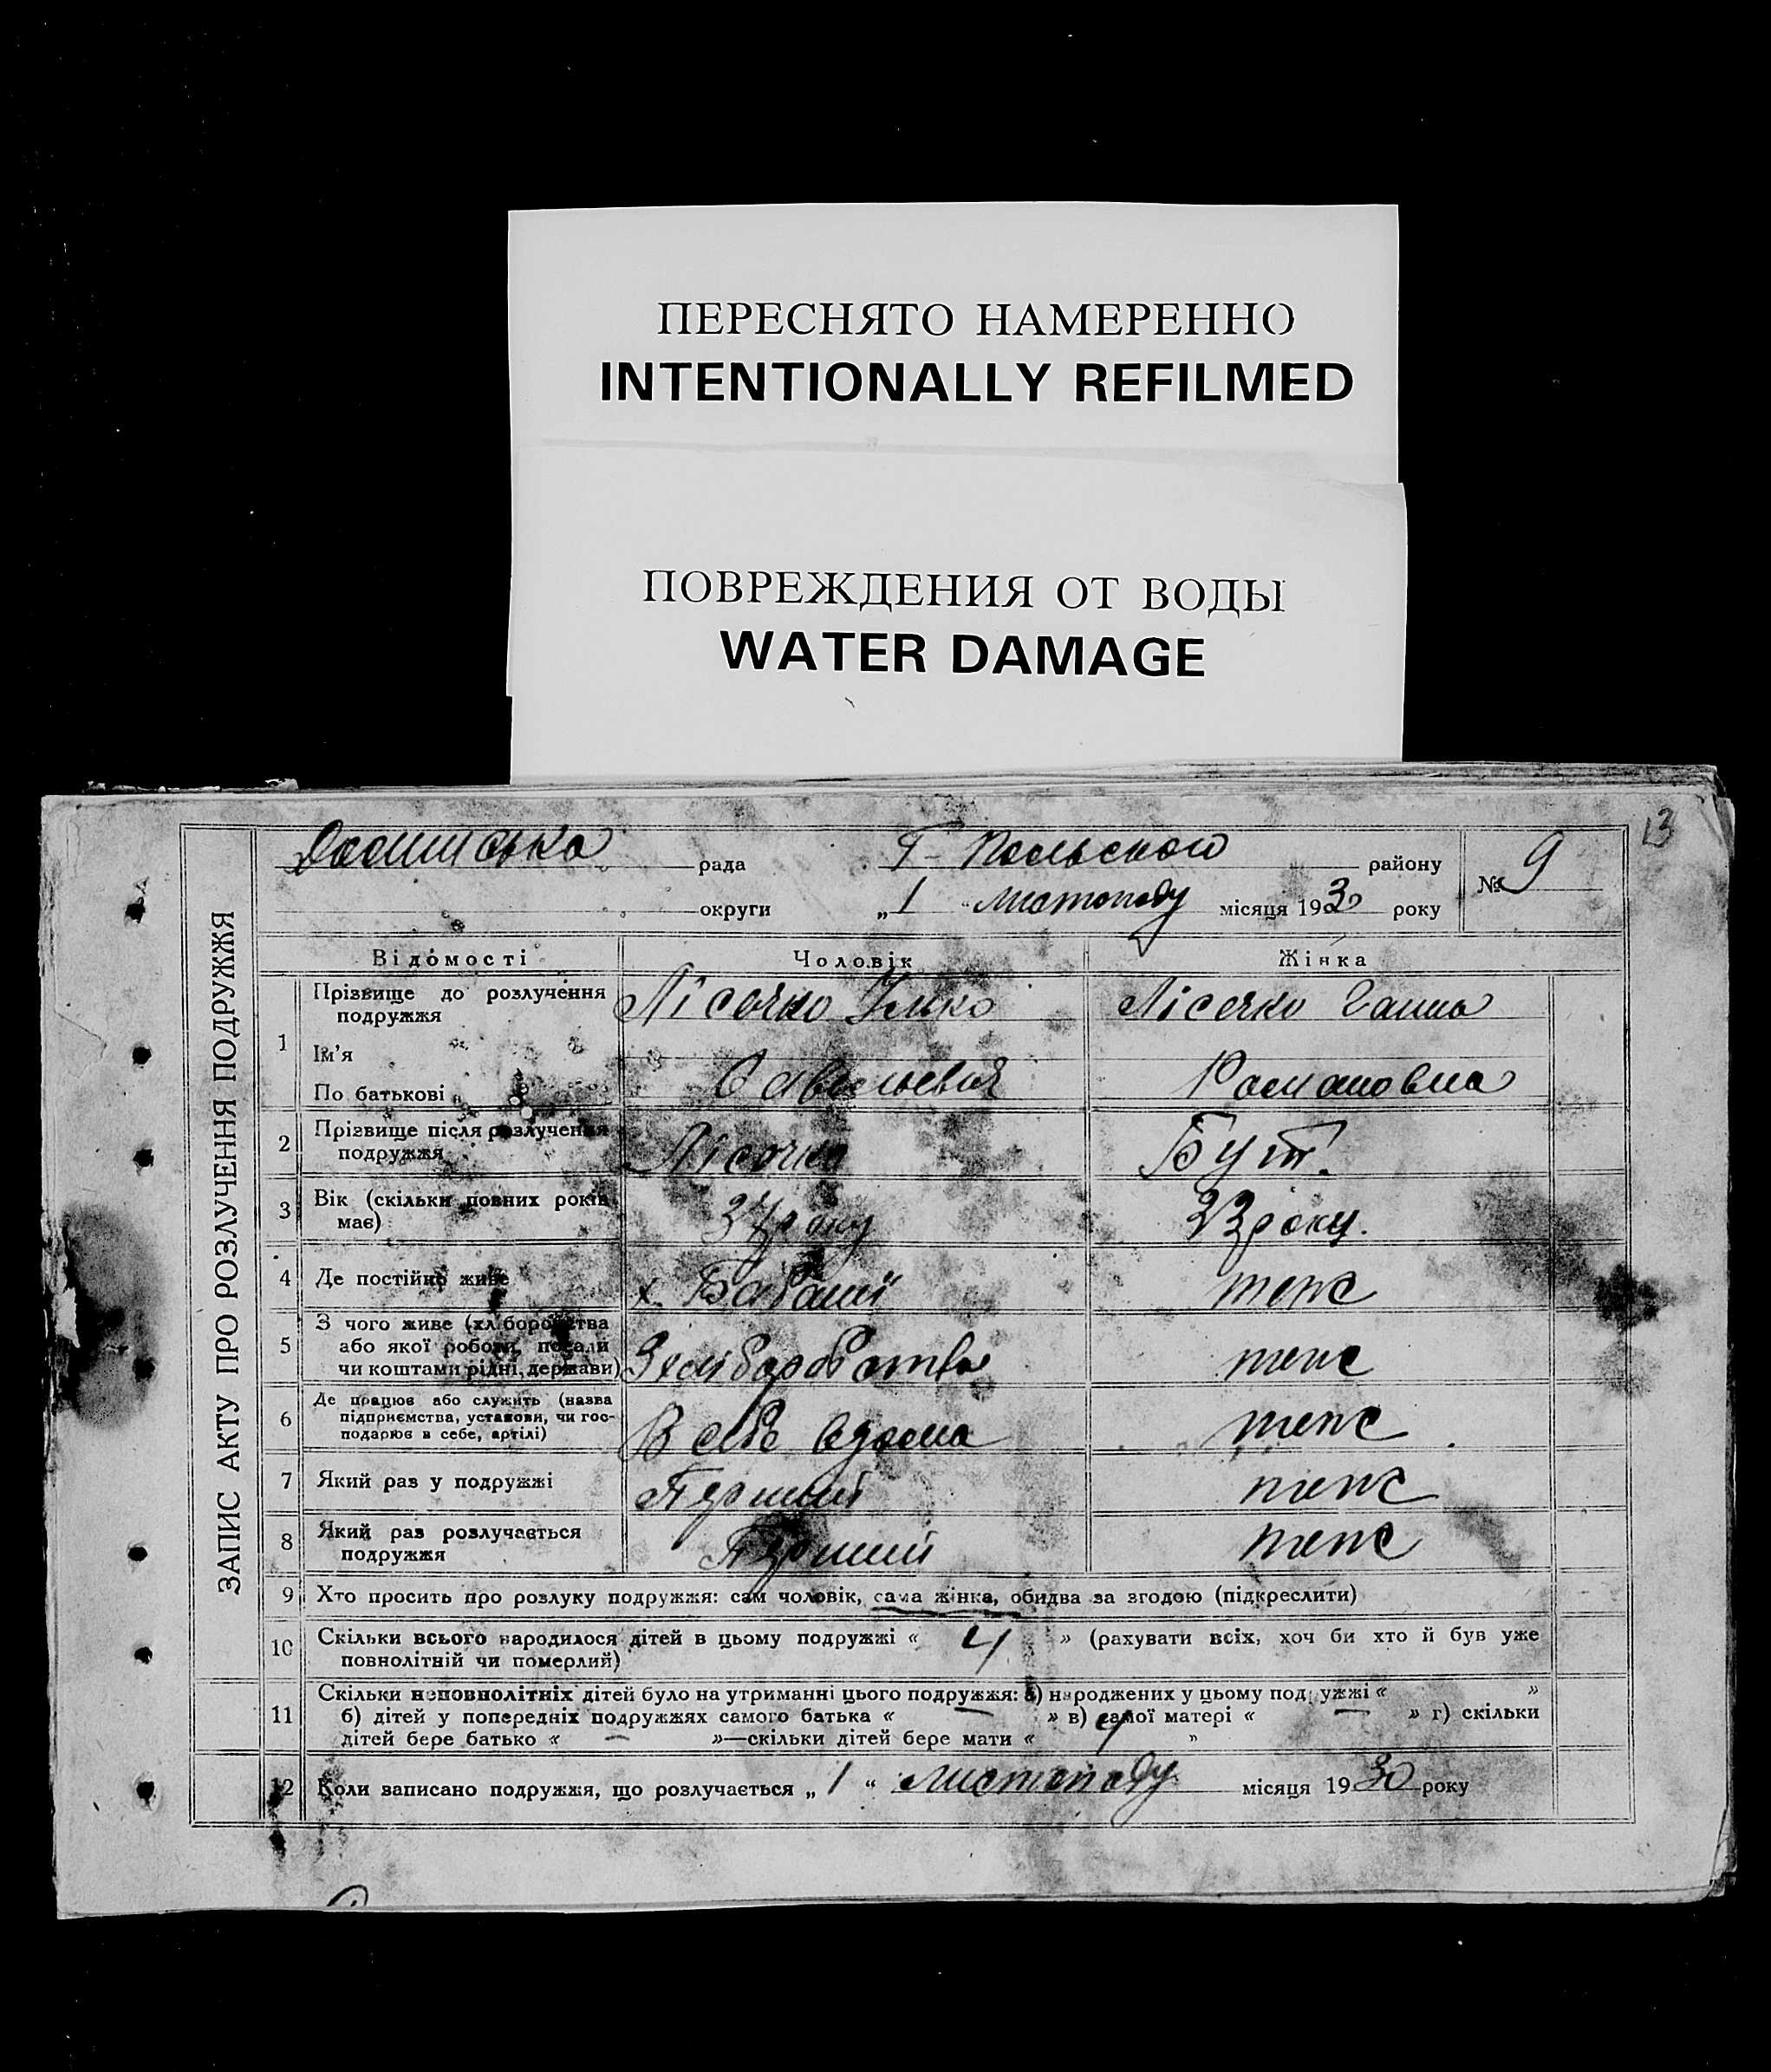 ПЕРЕСНЯТО НАМЕРЕННО
INTENTIONALLY REFILMED
ПОВРЕЖДЕНИЯ ОТ ВОДЫ
WATER DAMAGE
13
ЗАПИС АКТУ ПРО РОЗЛУЧЕННЯ ПОДРУЖЖЯ
рада Г-Польского району № 9
округи „1“ листопаду місяця 1930 року
Відомості Чоловік Жінка
1 Прізвище до розлучення подружжя Лісочко Ілько Лісочко Ганна
Ім'я
По батькові Савельевич Романовна
2 Прізвище після розлучення подружжя Лісочко Бут.
3 Вік (скільки повних років має) року 33 року.
4 Де постійно живе х. теж
5 З чого живе (хліборобства або якої роботи, посади чи коштами рідні, держави) теж
6 Де працює або служить (назва підприємства, установи, чи господарює в себе, артілі) В себе вдома теж
7 Який раз у подружжі Перший теж
8 Який раз розлучається подружжя Перший теж
9 Хто просить про розлуку подружжя: сам чоловік, сама жінка, обидва за згодою (підкреслити)
10 Скільки всього народилося дітей в цьому подружжі « 4 » (рахувати всіх, хоч би хто й був уже
повнолітній чи померлий)
11 Скільки неповнолітніх дітей було на утриманні цього подружжя: а) народжених у цьому подружжі « »
б) дітей у попередніх подружжях самого батька « — » в) самої матері « — » г) скільки
дітей бере батько « — »—скільки дітей бере мати « 4 »
12 Коли записано подружжя, що розлучається „1“ листопаду місяця 1930 року